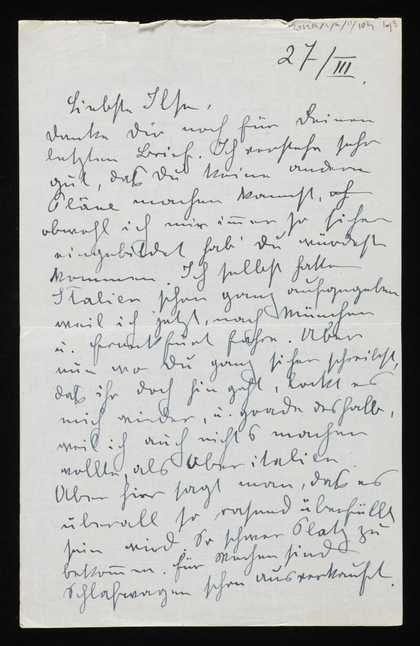 27/III.
Liebste Ilse,
danke Dir noch für Deinen
letzten Brief. Ich verstehe sehr
gut, daß Du keine andern
Pläne machen kannst,
obwohl ich mir immer so sicher
eingebildet hab' du würdest
kommen. Ich selbst hatte
Italien schon ganz aufgegeben
weil ich jetzt, nach München
u. Frankfurt fahre. Aber
nun wo du ganz sicher schreibst,
daß ihr doch hingeht, lockt es
mich wieder, u. grade deshalb,
weil ich auch nichts machen
wollte, als Oberitalien.
Aber hier sagt man, daß es
überall so rasend überfüllt
sein wird. So schwer Platz zu
bekommen. Für Wochen sind
Schlafwagen schon ausverkauft.